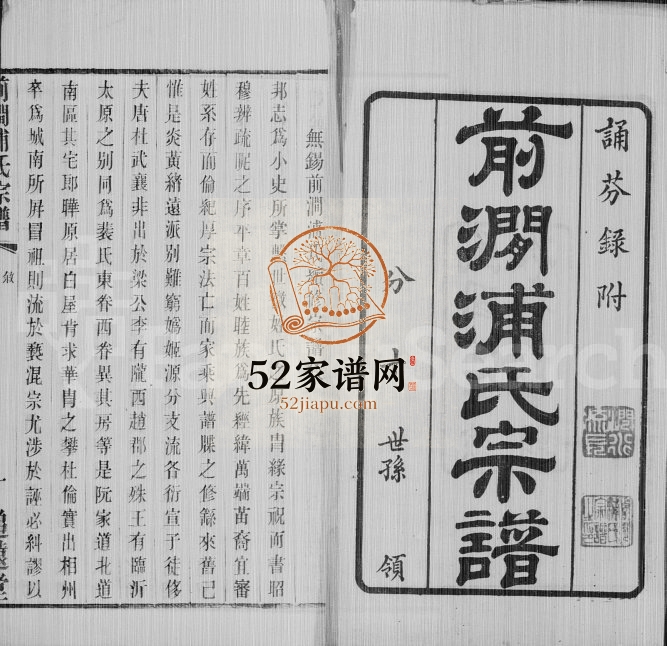 誦芬錄附
前澗浦氏宗譜
分
世孫
領
無錫前澗浦氏
邦志為小史所掌
世
姓氏
族冑緣宗祝而書昭
穆辨疏昵之序平章百姓睦族為先經緯萬端苗裔宜審
姓系存而倫紀厚宗法亡而家乘興譜牒之修繇來舊已
惟是炎黃緒遠派別難窮媯姬源分支流各衍宣于徒侈
夫唐杜武襄非出於梁公李有隴西趙郡之殊王有臨沂
太原之別同為裴氏東眷西眷異其房等是阮家道北道
南區其宅郎驊原居白屋肯求華冑之攀杜倫實出相州
卒為城南所屏冒祖則流於褻混宗尤涉於誣必糾謬以
前澗浦氏宗譜
敘
一
52家谱网
52jiapu.com